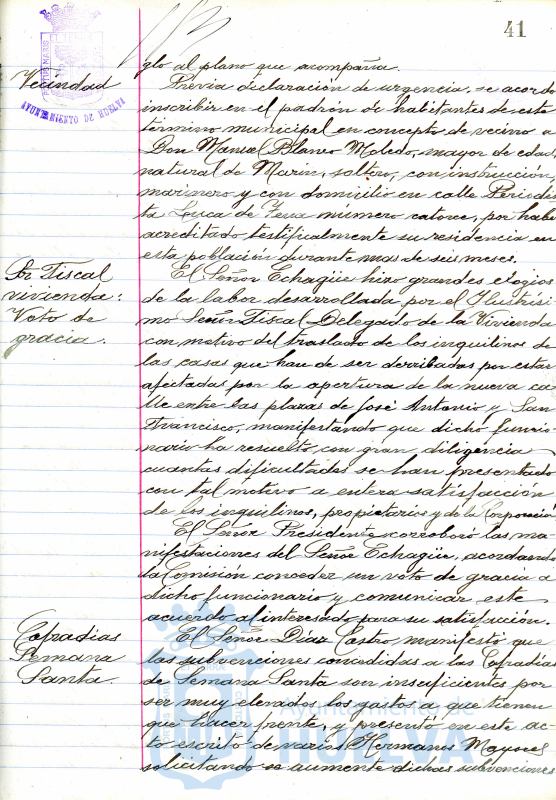 41
AYUNTAMIENTO DE HUELVA
glo al plano que acompaña.
Vecindad
Previa declaración de urgencia, se acordó
inscribir en el padrón de habitantes de este
término municipal en concepto de vecino a
Don Manuel Blanco Moledo, mayor de edad,
natural de Marin, soltero, con instrucción,
marinero y con domicilio en calle Periodis
ta Luca de Tena número catorce, por haber
acreditado testificalmente su residencia en
esta población durante mas de seis meses.
Sr. Fiscal
vivienda:
Voto de
gracia.
El Señor Echagüe hizo grandes elogios
de la labor desarrollada por el Ilustrísi
mo Señor Fiscal Delegado de la Vivienda
con motivo del traslado de los inquilinos de
las casas que han de ser derribadas por estar
afectadas por la apertura de la nueva ca
lle entre las plazas de José Antonio y San
Francisco, manifestando que dicho funcio
nario ha resuelto, con gran diligencia
cuantas dificultades se han presentado
con tal motivo a entera satisfacción
de los inquilinos, propietarios y de la Corporación
El Señor Presidente corroboró las ma
nifestaciones del Señor Echagüe, acordando
la Comisión conceder un voto de gracia a
dicho funcionario y comunicar este
acuerdo al interesado para su satisfacción.
Cofradías
Semana
Santa.
El Señor Díaz Castro, manifestó que
las subvenciones concedidas a las Cofradías
de Semana Santa son insuficientes por
ser muy elevados los gastos a que tienen
que hacer frente, y presentó en este ac
to escrito de varios Hermanos Mayores
solicitando se aumente dichas subvenciones
Ayuntamiento de
HUELVA